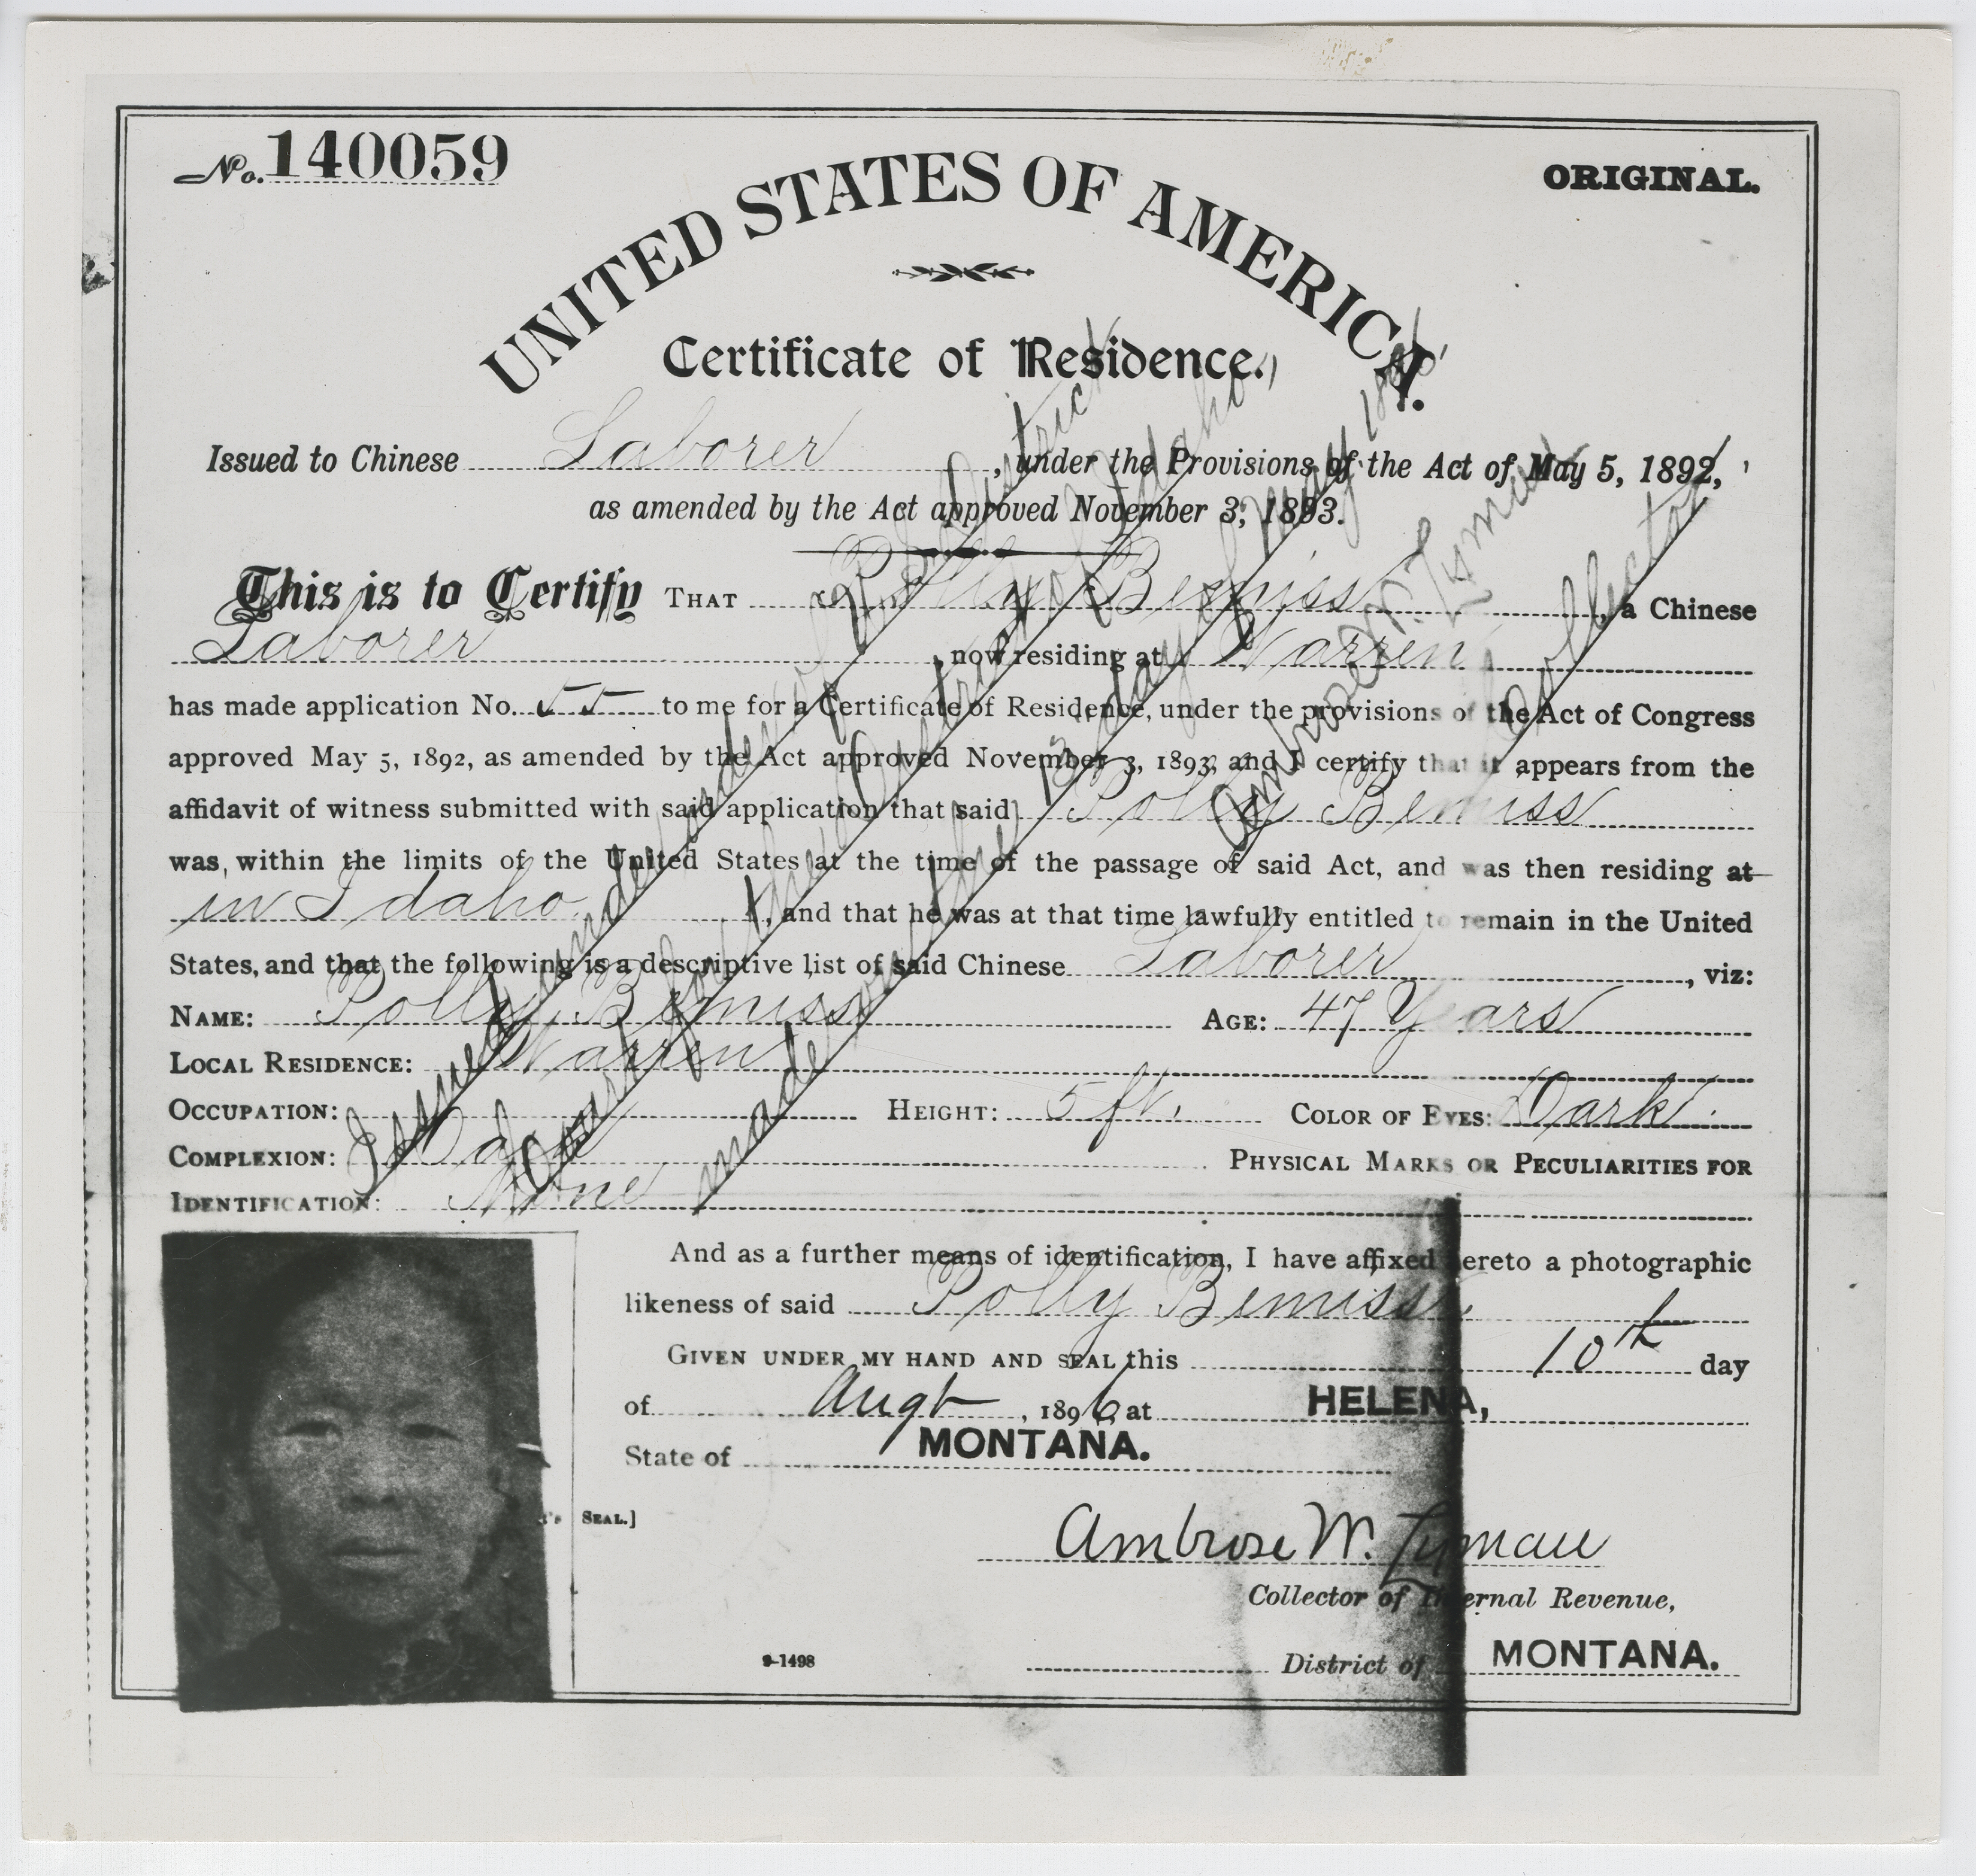 No. 140059
ORIGINAL.
UNITED STATES OF AMERICA.
Certificate of Residence.
Issued to Chinese Laborer, under the Provisions of the Act of May 5, 1892,
as amended by the Act approved November 3, 1893.
This is to Certify THAT Polly Bemiss, a Chinese
Laborer, now residing at Warren
has made application No. 55 to me for a Certificate of Residence, under the provisions of the Act of Congress
approved May 5, 1892, as amended by the Act approved November 3, 1893, and I certify that it appears from the
affidavit of witness submitted with said application that said Polly Bemiss
was, within the limits of the United States at the time of the passage of said Act, and was then residing at
in Idaho, and that he was at that time lawfully entitled to remain in the United
States, and that the following is a descriptive list of said Chinese Laborer, viz:
NAME: Polly Bemiss AGE: 47 Years
LOCAL RESIDENCE: Warren
OCCUPATION: HEIGHT: 5 ft. COLOR OF EYES: Dark.
COMPLEXION: Dark PHYSICAL MARKS OR PECULIARITIES FOR
IDENTIFICATION: None
And as a further means of identification, I have affixed hereto a photographic
likeness of said Polly Bemiss.
GIVEN UNDER MY HAND AND SEAL this 10th day
of Augt, 1896, at HELENA,
State of MONTANA.
SEAL.]
Ambrose W. Lyman
Collector of Internal Revenue,
9-1498
District of MONTANA.
Issued under order of U.S. District
Court for the District of Idaho,
made on the 13 day of May 1896.
Ambrose W. Lyman
Collector